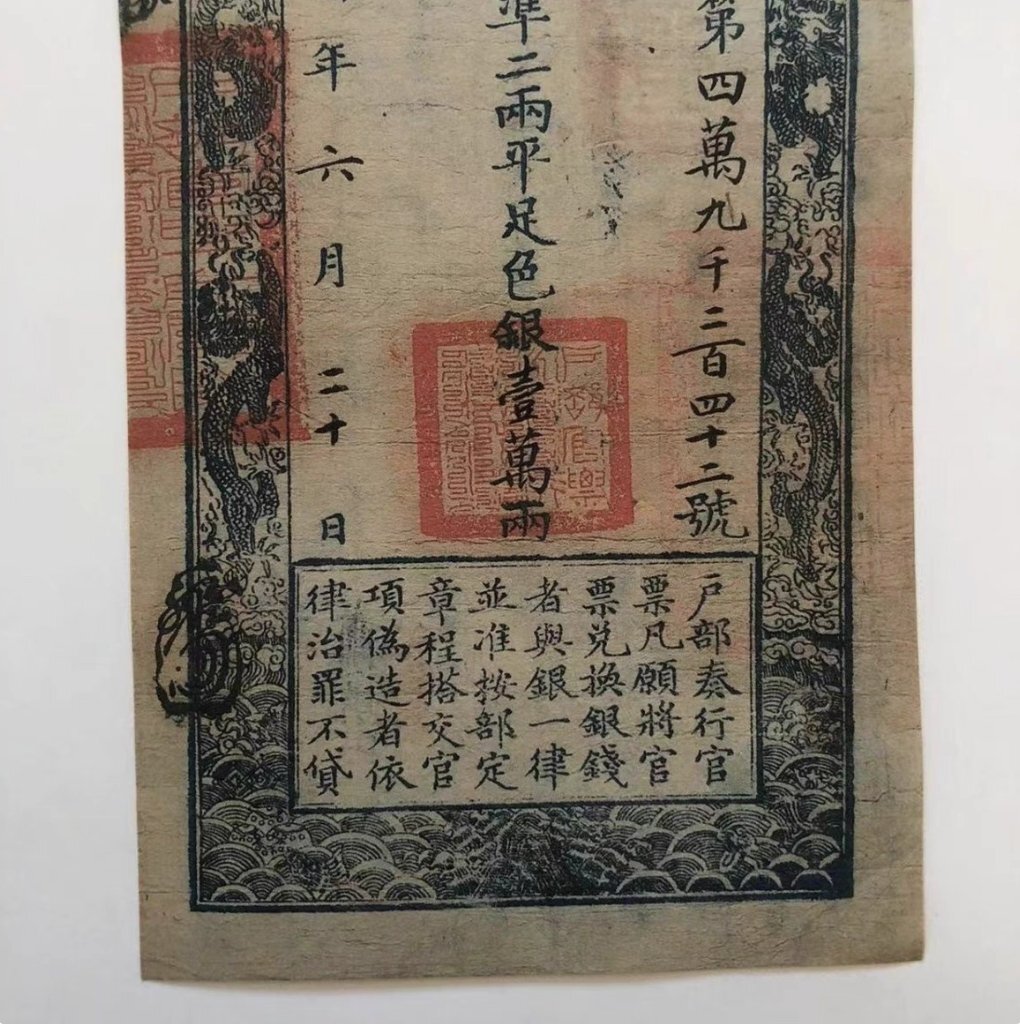 第四萬九千二百四十二號
準二兩平足色銀壹萬兩
年六月二十日
戶部奏行官
票凡願將官
票兌換銀錢
者與銀一律
並准按部定
章程搭交官
項偽造者依
律治罪不貸